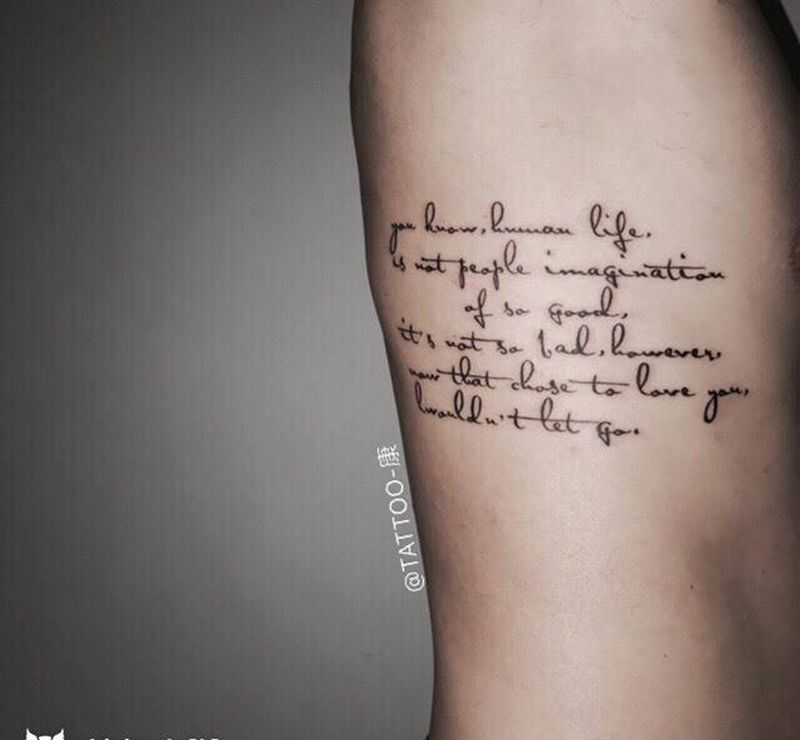 you know, human life.
is not people imagination
of so good,
it's not so bad, however,
now that chose to love you,
Iwouldn't let go.
@TATTOO-康